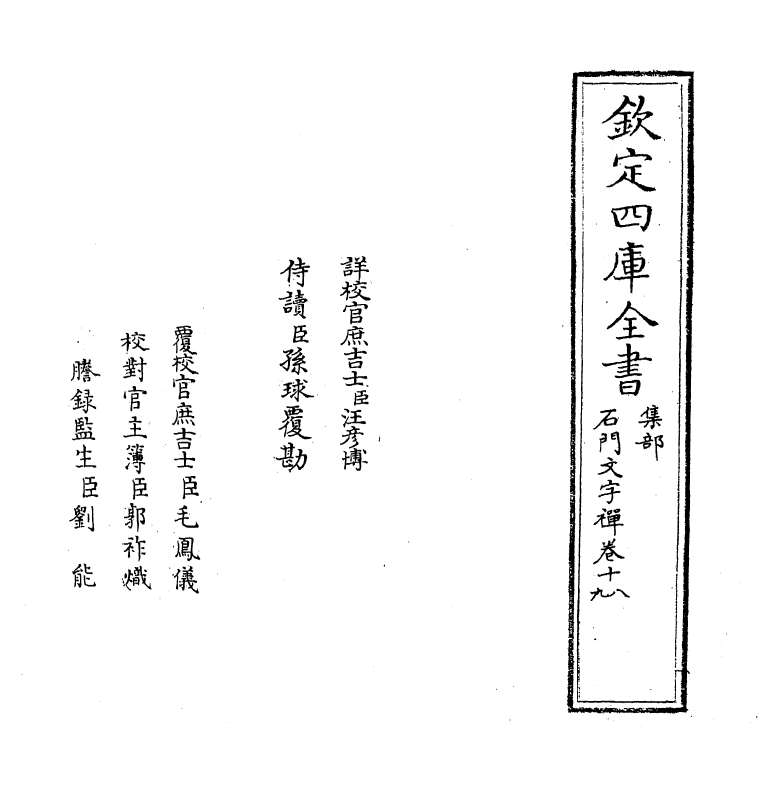 欽定四庫全書
集部
石門文字禪卷十八九
詳校官庶吉士臣汪彦博
侍讀臣孫球覆勘
覆校官庶吉士臣毛鳳儀
校對官主簿臣郭祚熾
謄録監生臣劉能